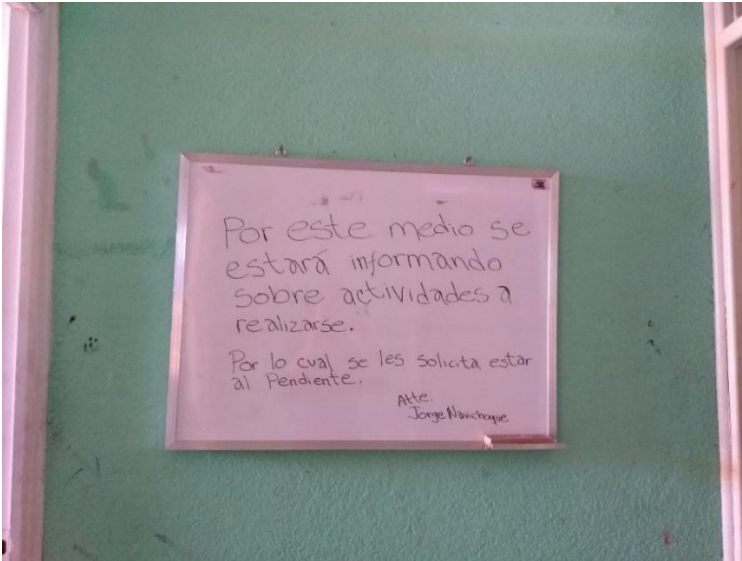 Por este medio se
estará informando
sobre actividades a
realizarse.
Por lo cual se les solicita estar
al Pendiente.
Atte.
Jorge